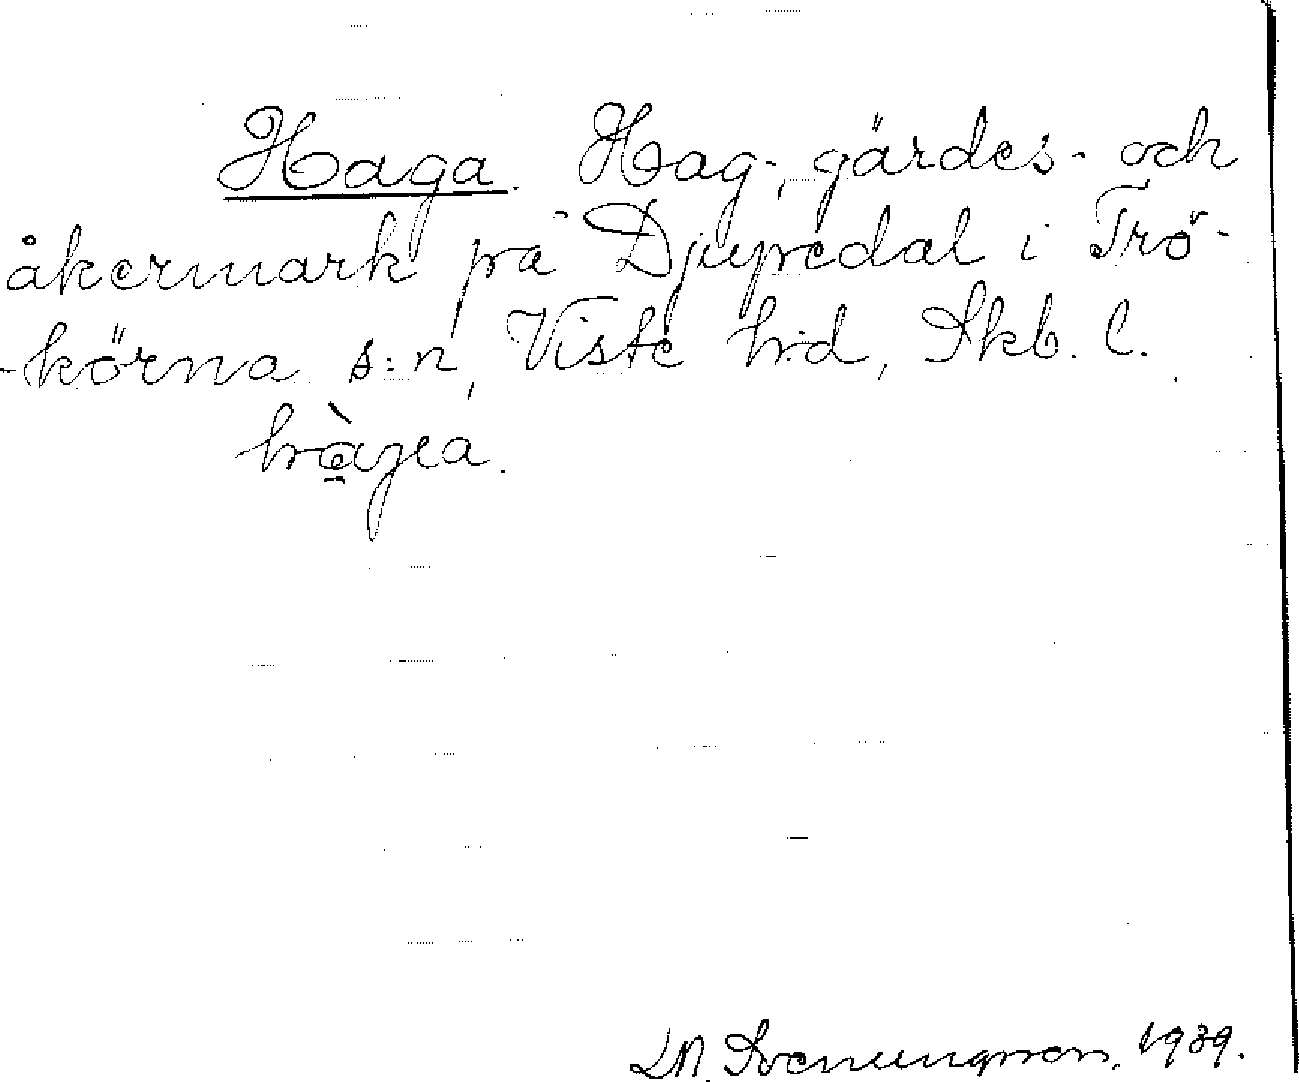 Haga. Hag-, gärdes- och
åkermark på Djupedal i Trö-
-körna s:n, Viste h:d, Skb. l.
Svenungsson. 1939.